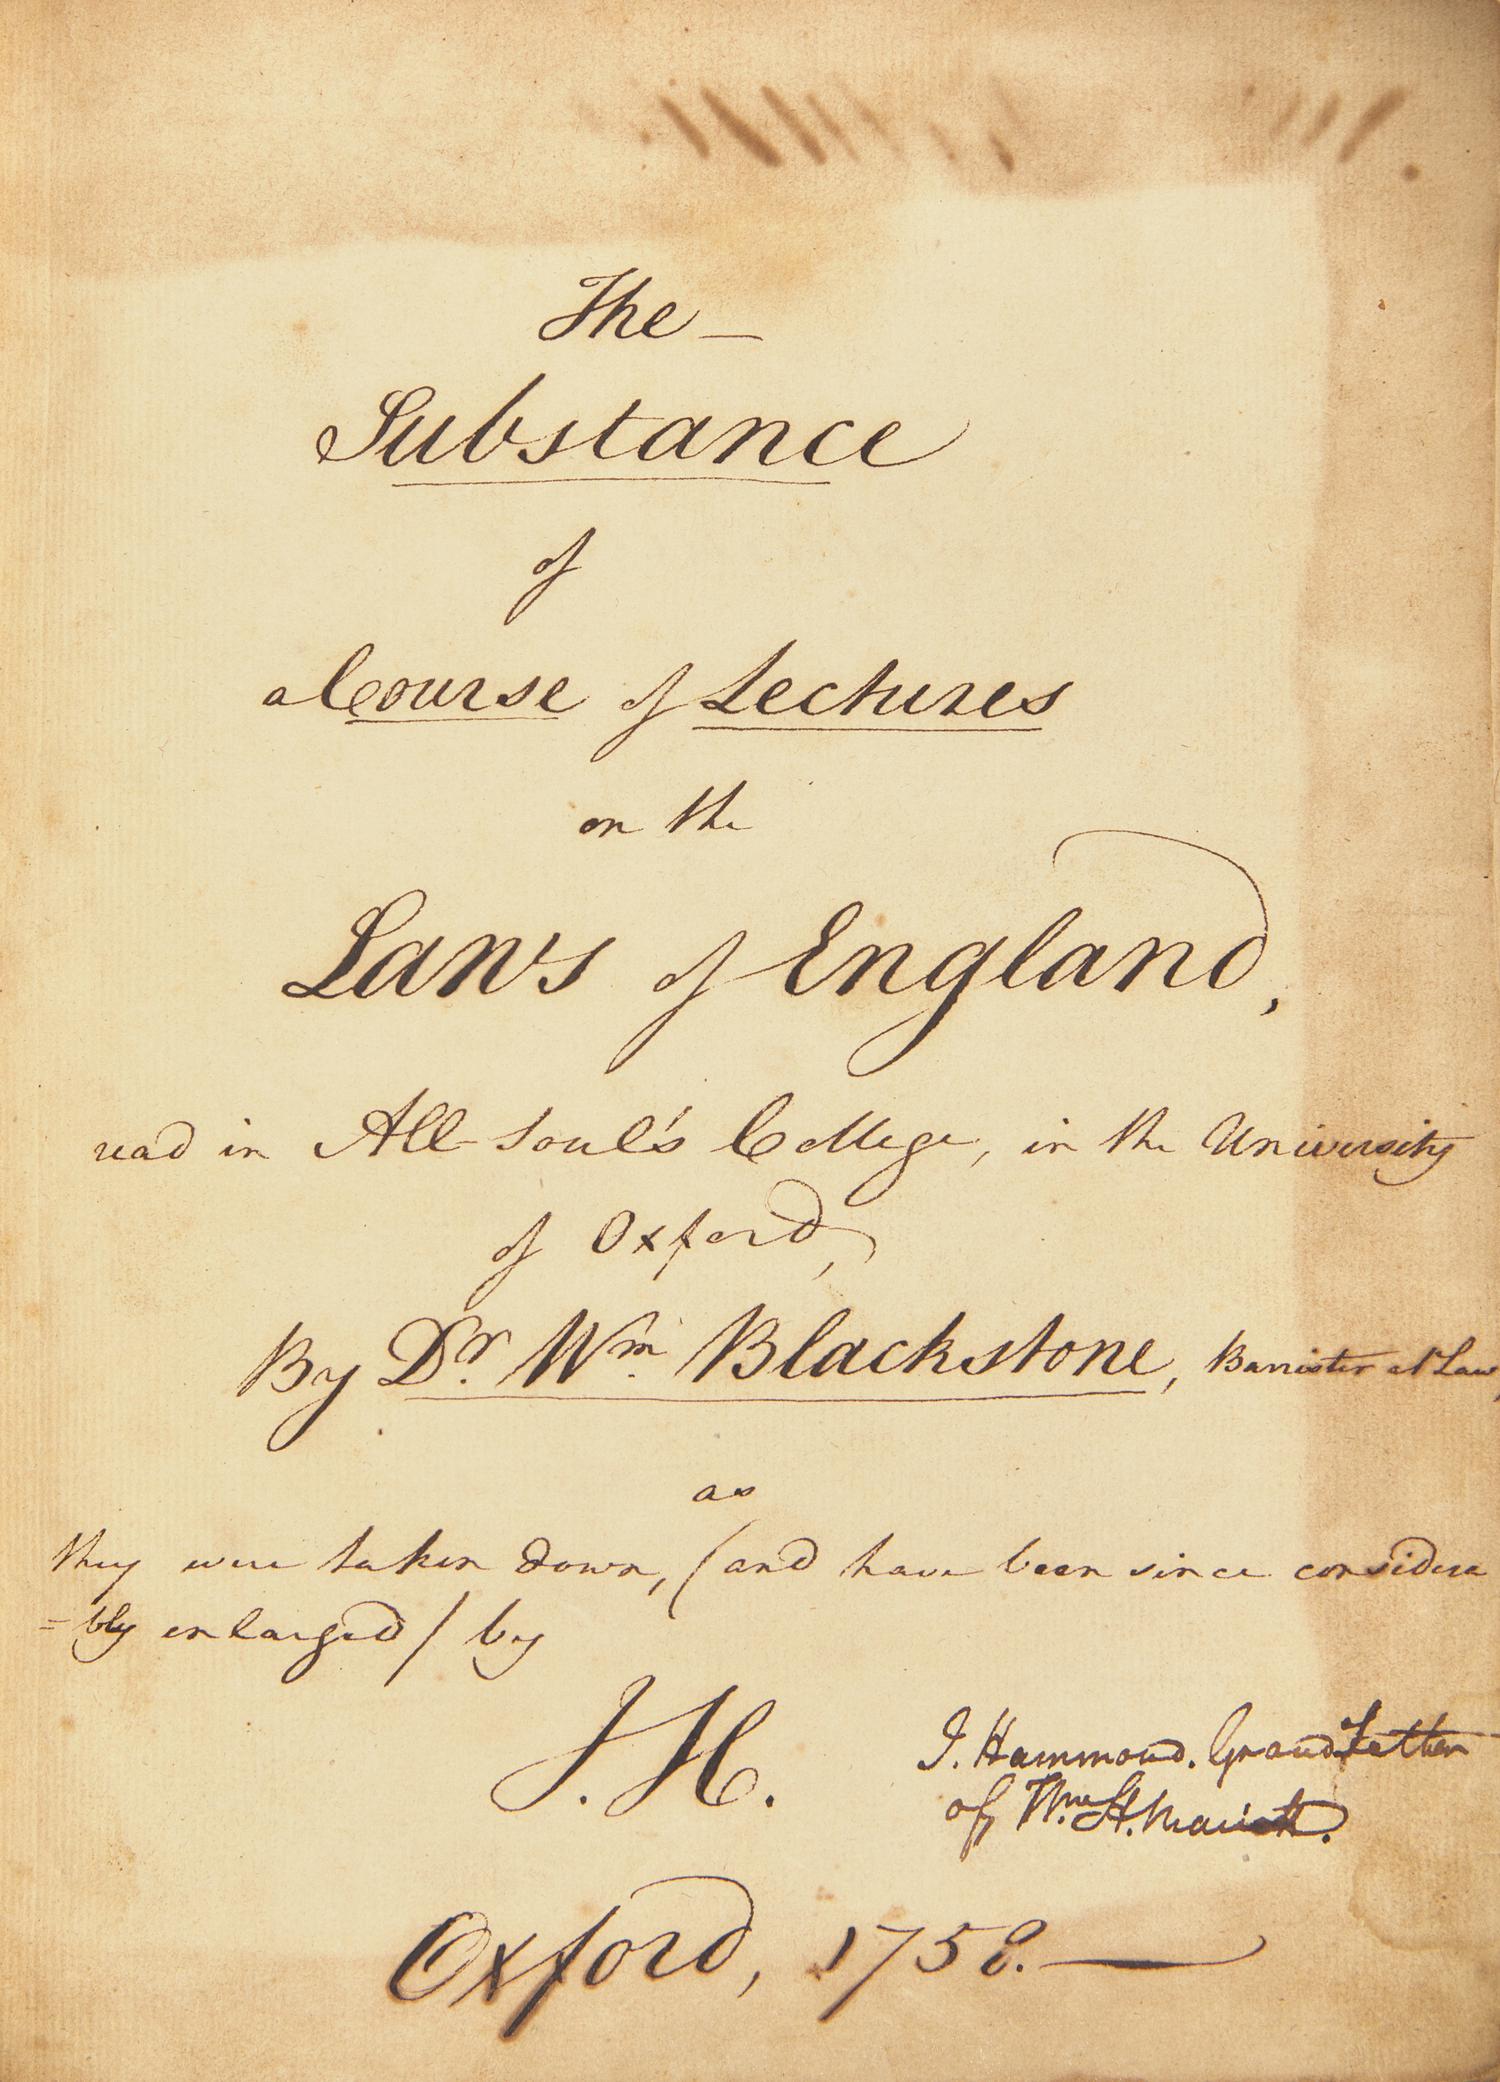 The —
Substance
of
a Course of Lectures
on the
Laws of England,
read in All-Soul's College, in the University
of Oxford,
By Dr. Wm. Blackstone, Barrister at Law,
as
they were taken down, (and have been since considera
=bly enlarged) by
J. H.
J. Hammond. Grandfather
of Wm. H.
Oxford, 1758. —